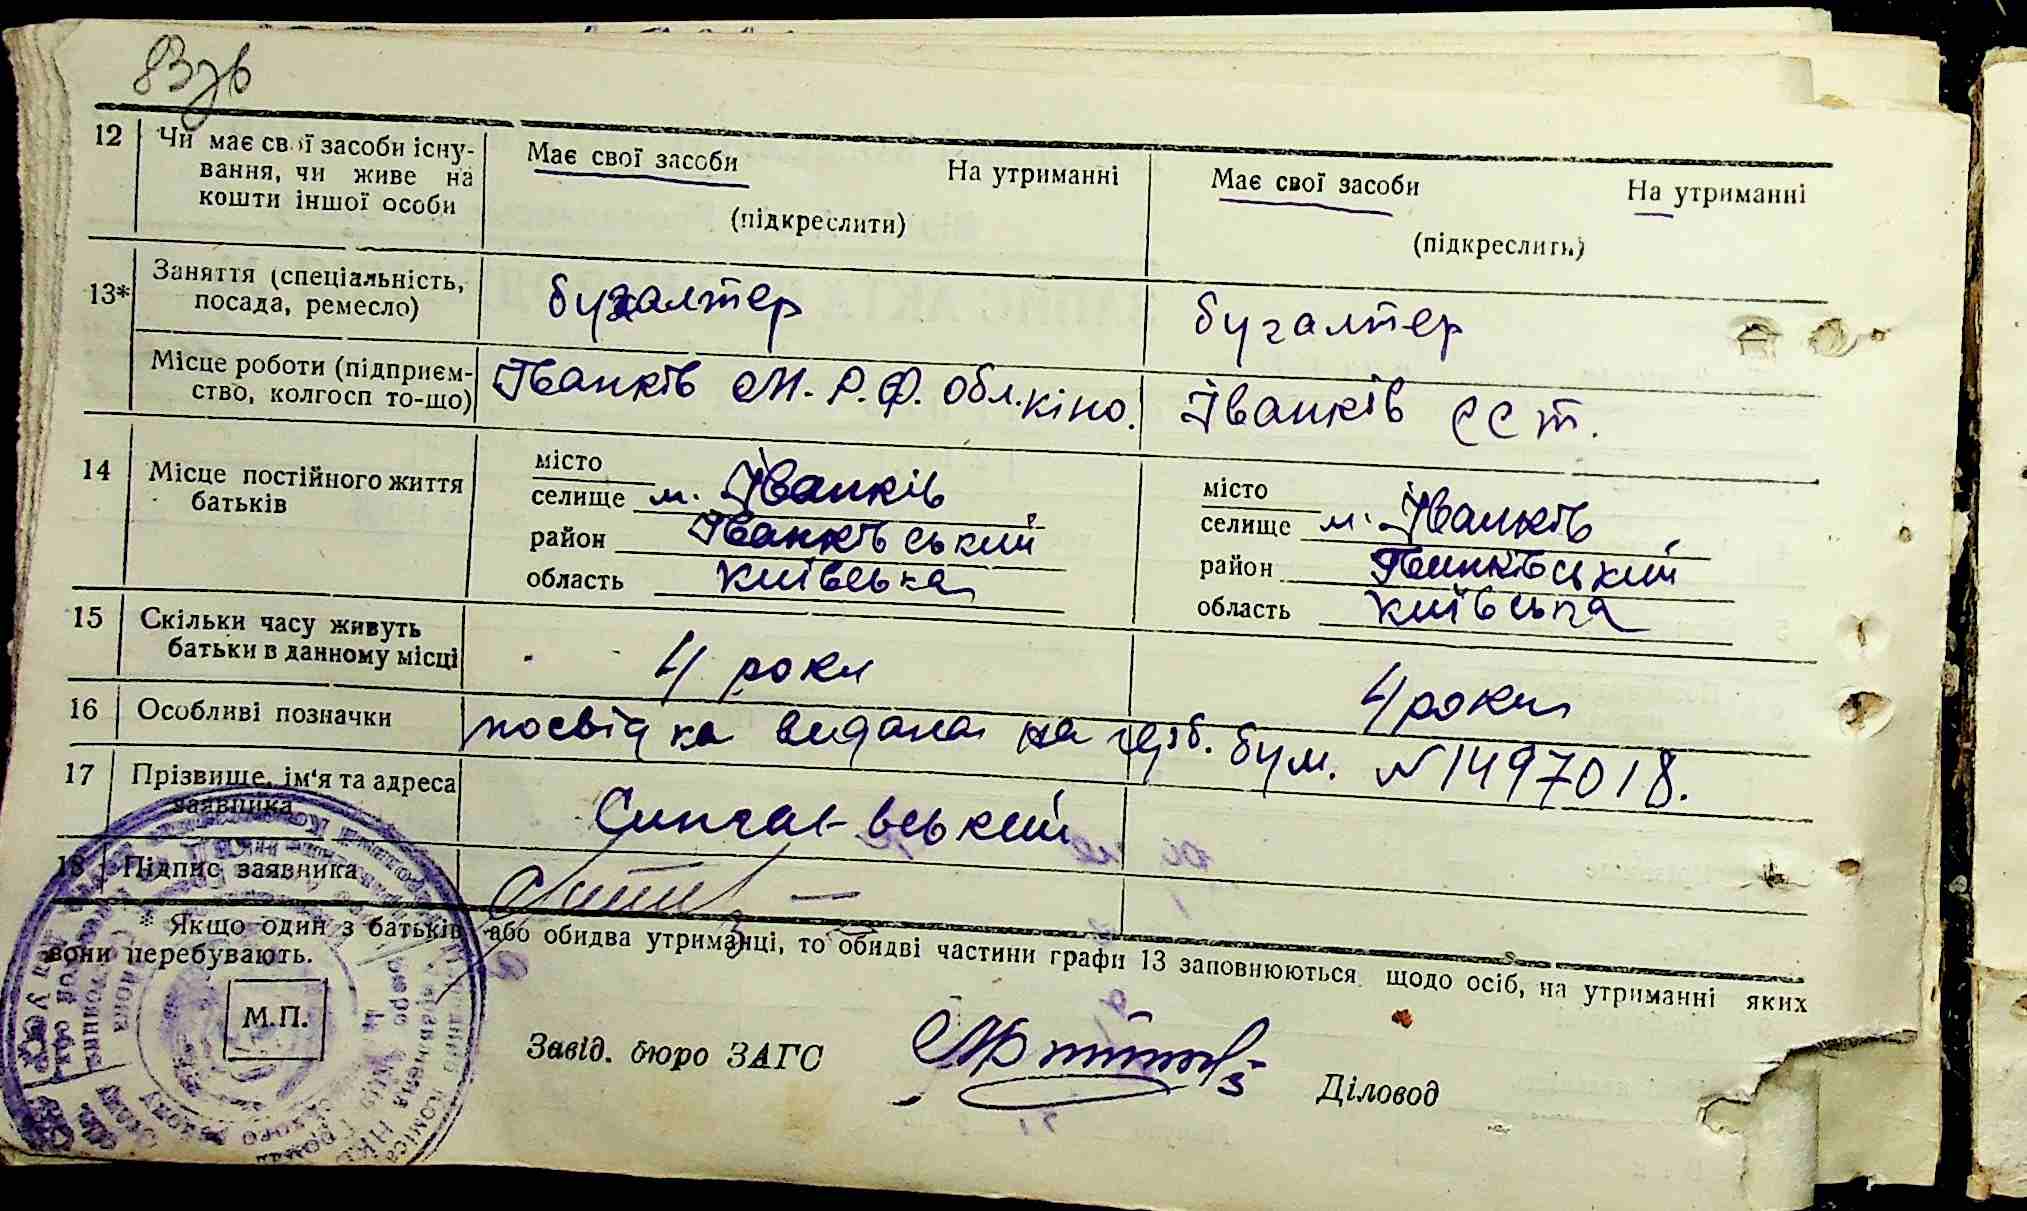 83зв
12 Чи має свої засоби існу-
вання, чи живе на
кошти іншої особи
Має свої засоби На утриманні
(підкреслити)
Має свої засоби На утриманні
(підкреслить)
13* Заняття (спеціальність,
посада, ремесло)
бухгалтер
бугалтер
Місце роботи (підприєм-
ство, колгосп то-що)
Іванків М.Р.Ф. Обл.кіно.
Іванків ССТ.
14 Місце постійного життя
батьків
місто
селище м. Іванків
район Іванківський
область київська
місто
селище м. Іванків
район Іванківський
область київська
15 Скільки часу живуть
батьки в данному місці
4 роки
4 роки
16 Особливі позначки
посвідка видана на герб. бум. №1497018.
17 Прізвище, ім'я та адреса
заявника
вський
18 Підпис заявника
* Якщо один з батьків або обидва утриманці, то обидві частини графи 13 заповнюються щодо осіб, на утриманні яких
вони перебувають.
М.П.
Завід. бюро ЗАГС
Діловод